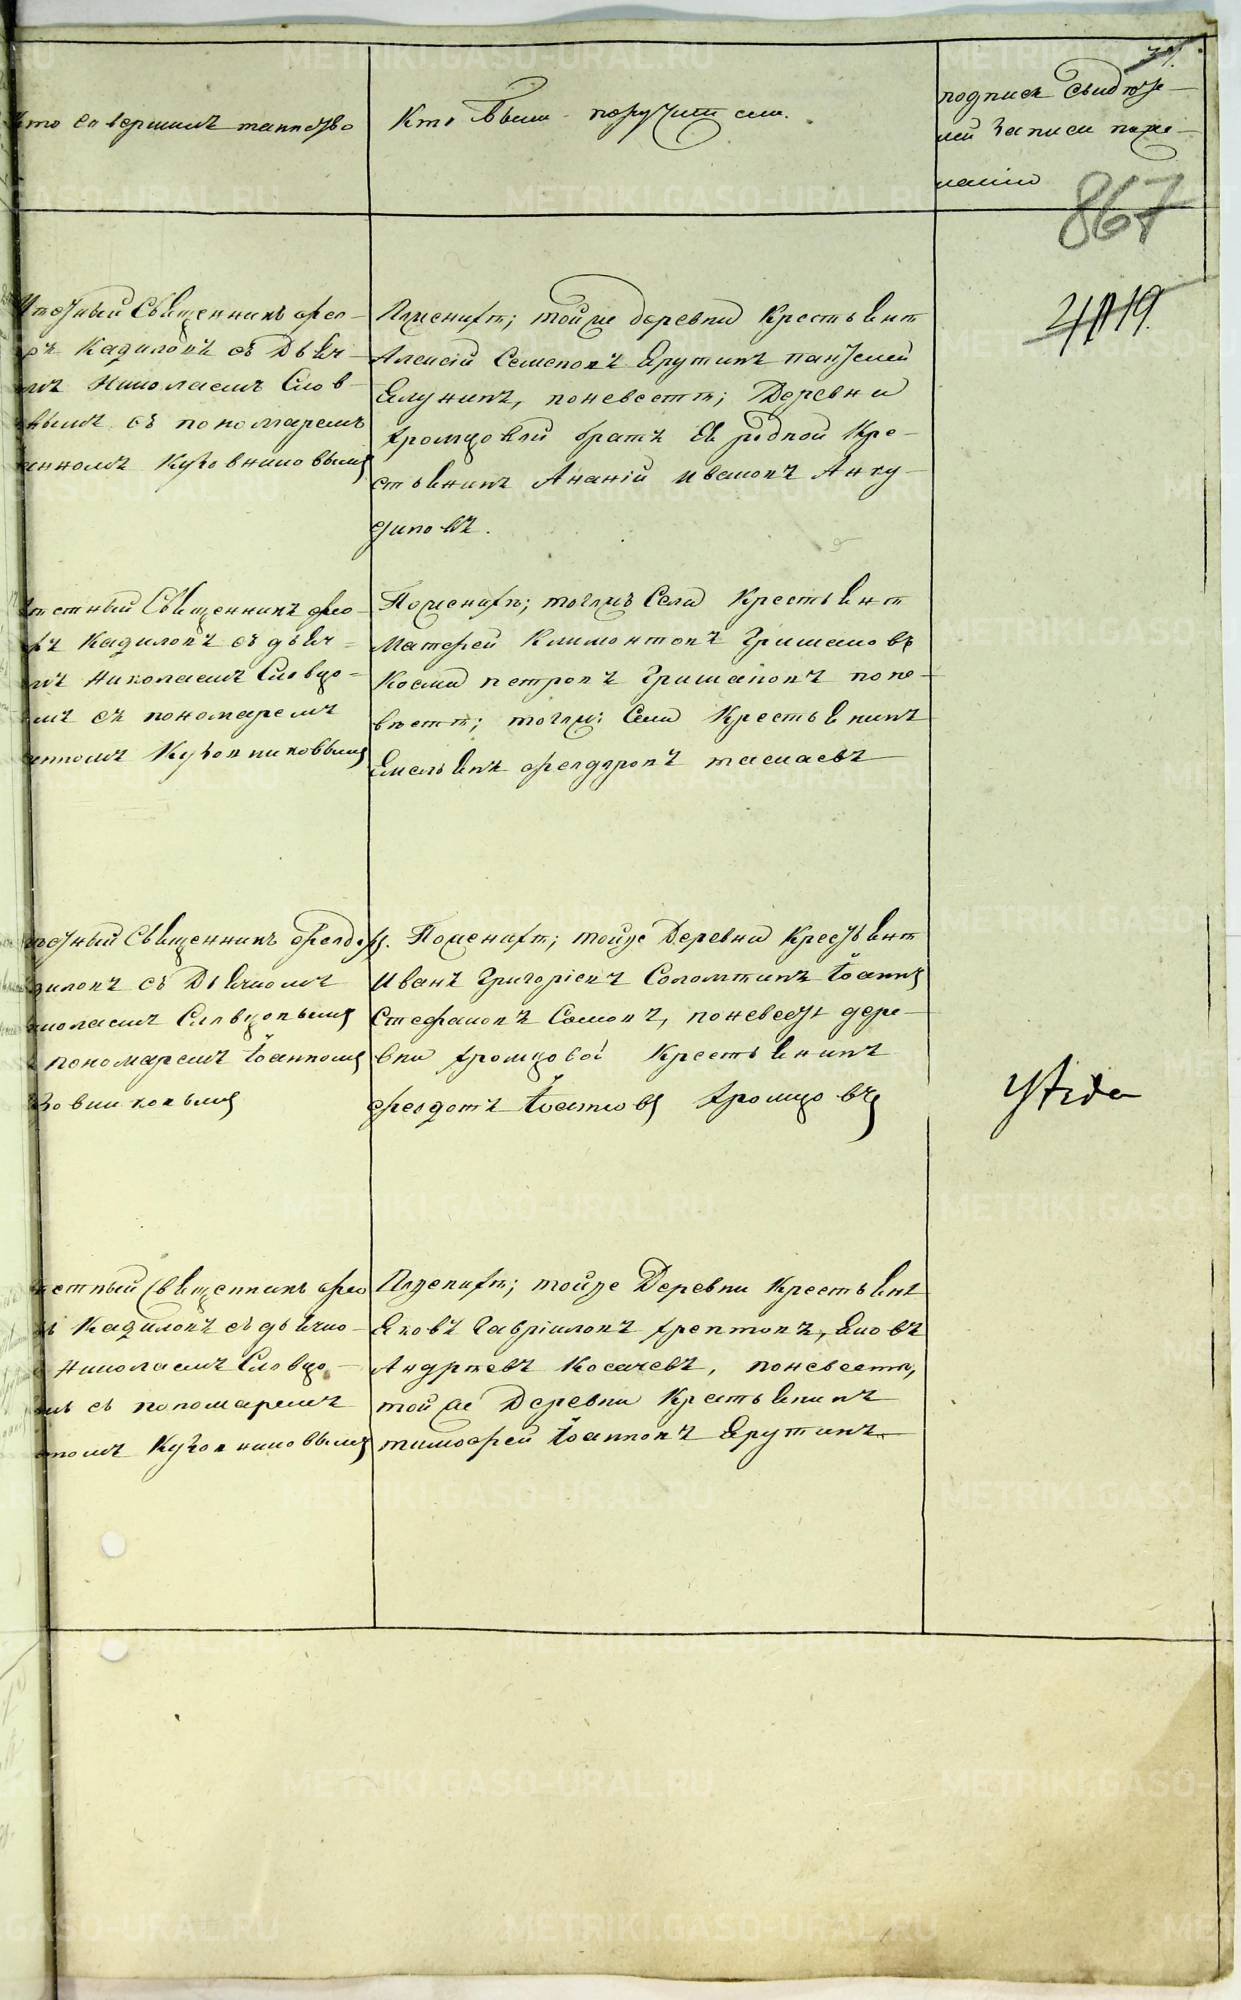 31.
Кто совершилъ таинство
Кто были поручители.
подписи свидете-
лей записи поже-
ланию
867
4119.
Местный Священникъ Фео-
Кадиловъ съ Дьяч-
Николаемъ Слов-
съ пономаремъ
Кузовниковымъ
По женихе; тойже деревни Крестьяни
Алексей Семеновъ Ярутинъ Пантелей
Елунинъ, по невесте; Деревни
Хромцовой братъ Ея родной Кре-
стьянинъ Ананій Ивановъ Анку-
диновъ.
Местный Священникъ Фео-
Кадиловъ съ дьяч-
Николаемъ Словцо-
съ пономаремъ
Кузовниковымъ
По женихе; тогожъ Села Крестьяни
Матфей Климонтовъ Гришановъ
Косма Петровъ Гришановъ по не-
весте; тогож: Села Крестьянинъ
Емельянъ Феодоровъ
Местный Священникъ Феодоръ
Кадиловъ съ Дьячкомъ
Николаемъ Словцовымъ
пономаремъ Іоанномъ
Кузовниковымъ
По женихе; тойже Деревни Крестьяни
Иванъ Григоріевъ Соломтинъ Іоаннъ
Стефановъ Сомовъ, по невесте дере-
вни Хромцовой Крестьянинъ
Федотъ Іоанновъ Хромцовъ
Местный Священникъ Фео
Кадиловъ съ дьячко-
Николаемъ Словцо-
съ пономаремъ
Кузовниковымъ
По женихе; тойже Деревни Крестьяне
Яковъ Гавріиловъ Хрептовъ, Яковъ
Андреевъ Косачевъ, по невесте,
той же Деревни Крестьянинъ
Тимофей Іоанновъ Ярутинъ
METRIKI.GASO-URAL.RU